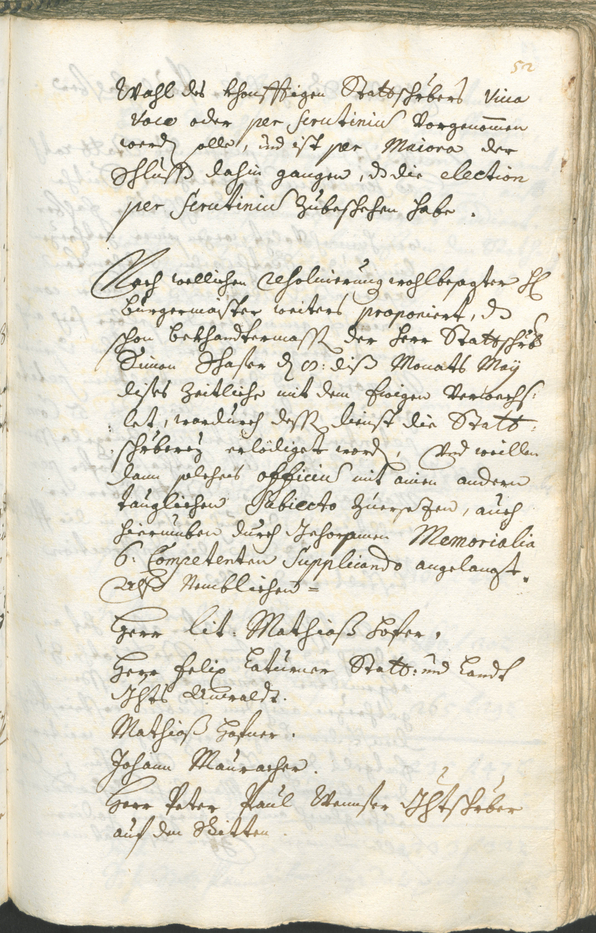 52
Wahl des khonfftigen Stattschrbers viva
voce oder per scrutiniu vorgenommen
werdn solle, und ist per Maiora der
Schluss dahin gangen, dz die election
per Scrutiniu zubeschehen habe.
Nach wellichen resolvierung wohlbesagter H
Burgermaister weiters proponiert, dz
schon bekhandtermassn der Herr Stattschrb
Simon diss Monats May
dises Zeitliche mit dem Ewigen verwechs:
let, wardurch dessn dienst die Statt:
schrberey erlediget wordn, und weillen
dann solches officiu mit ainen andern
tauglichen Subiecto zuersezen, auch
hierumben durch gehorsamen Memorialia
6: Competenten Supplicando angelangt.
Alss Nemblichen =
Herr Lit: Mathiass Hofer.
Herr Felix Laturner Statt: und Landt
Ghts Anwaldt.
Mathiass Hofner.
Johann Mauracher.
Herr Peter Paul Wennser Ghtschrber
auf dem Ritten.